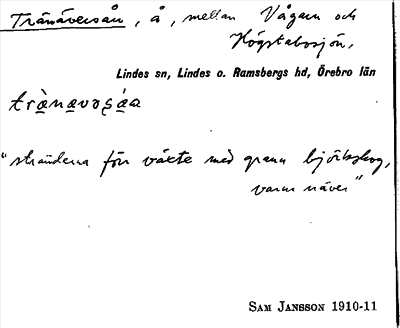 Tränäversån, å, mellan Vågarn och
Högstabosjön,
Lindes sn, Lindes o. Ramsbergs hd, Örebro län
"stränderna förr växte med grann björkskog,
varur näver"
SAM JANSSON 1910-11